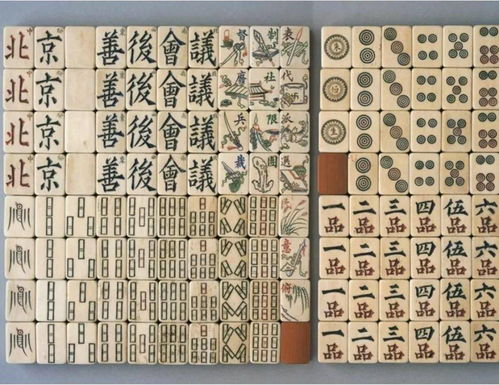 北 京 善 後 會 議 督 制 表
北 京 善 後 會 議 社 代
北 京 善 後 會 議 兵 限 派
北 京 善 後 會 議 裁 團 選
意
一品 二品 三品 四品 伍品 六品
一品 二品 三品 四品 伍品 六品
一品 二品 三品 四品 伍品 六品
一品 二品 三品 四品 伍品 六品